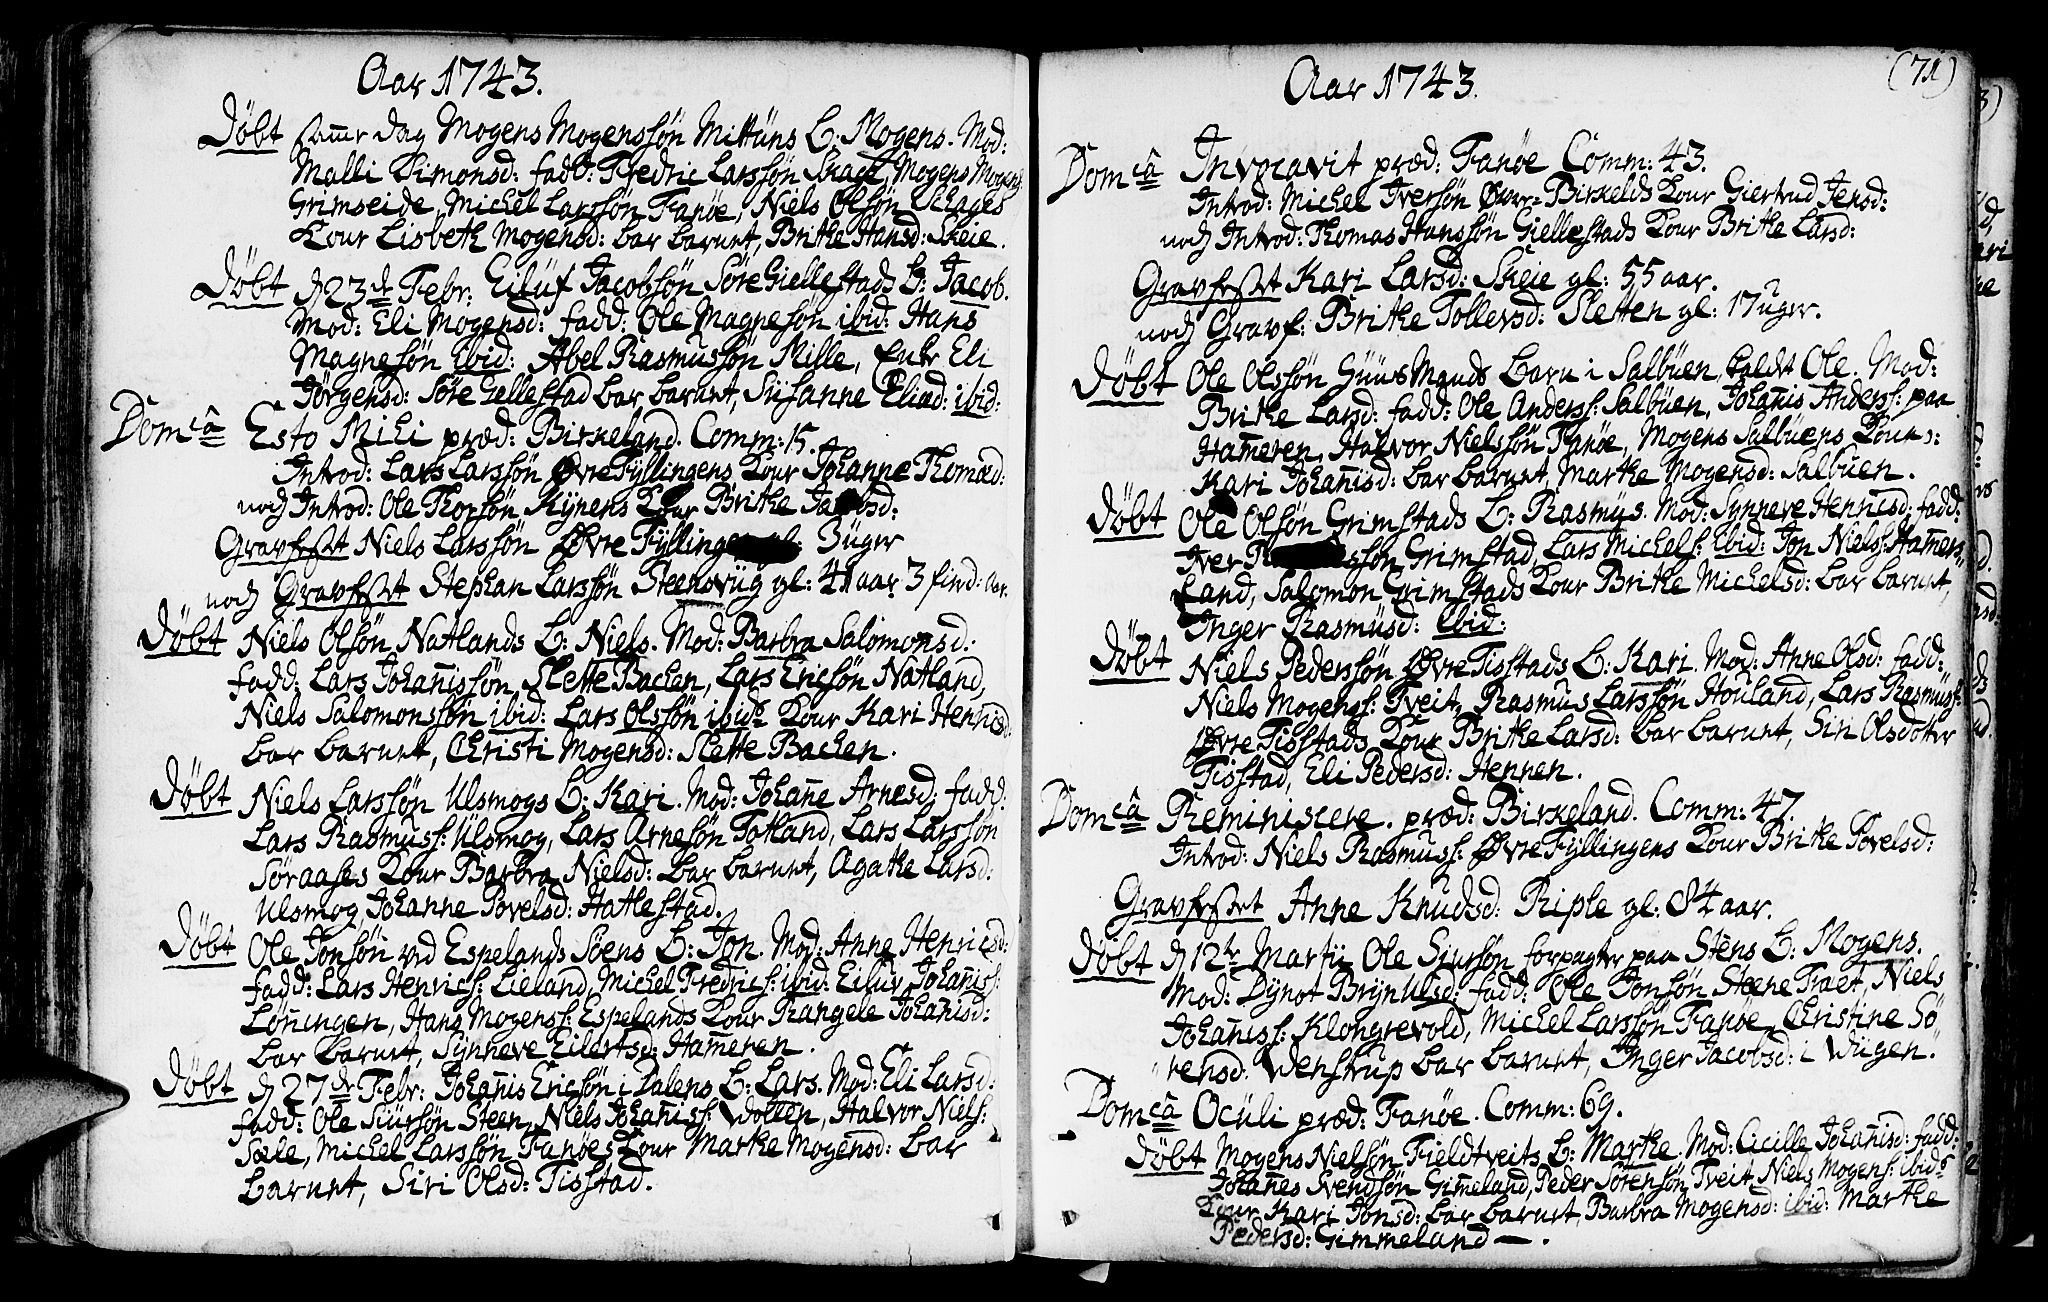 Aar 1743.
Døbt samme dag Mogens Mogenssøn Mittuns B: Mogens. Mod:
Malli Simonsd: fadd: Fredric Larssøn Skage, Mogens Mogens:
Grimseide, Michel Larssøn Fanøe, Niels Olssøn Schages
Kour Lisbeth Mogensd: bar barnet, Brithe Hansd: Skeie.
Døbt d 23de Febr: Eiluf Jacobsøn Søre Giellestads B: Jacob.
Mod: Eli Mogensd: fadd: Ole Magnesøn ibid: Hans
Magnesøn Ibid: Abel Rasmussøn Mille, Enke Eli
Jørgensd: Søre Gellestad bar barnet, Susanne Eliæd: ibid:
Domcâ Esto Mihi præd: Birkeland. Comm: 15.
Introd: Lars Larssøn Øvre Fyllingens Kour Johanne Thomæd:
noch Introd: Ole Thorsøn Kynens Kour Brithe Jacobsd:
Gravfestet Niels Larssøn Øvre Fyllingen gl: 3 uger
noch Gravfestet Stephan Larssøn Steensviig gl: 41 aar 3 fird: aar.
Døbt Niels Olsøn Natlands B: Niels. Mod: Barbra Salomonsd:
fadd: Lars Johanissøn, Slette Bachen, Lars Ericsøn Natland,
Niels Salomonssøn ibid: Lars Olssøn ibid: Kour Kari Henricsd:
bar barnet, Christi Mogensd: Slette Bachen.
Døbt Niels Larssøn Ulsmogs B: Kari. Mod: Johañe Arnesd: fadd:
Lars Rasmuss: Ulsmog, Lars Arnesøn Totland, Lars Larssøn
Søraases Kour Barbra Nielsd: bar barnet, Agathe Larsd:
Ulsmog, Johanne Povelsd: Hatlestad.
Døbt Ole Jonsøn ved Espelands Søens B: Jon. Mod: Anne Henricsd:
fadd: Lars Henrics: Lieland, Michel Fredrics: ibid: Eiluv Johañiss:
Løñingen, Hans Mogenss: Espelands Kour Rangele Johañisd:
bar barnet, Synneve Eilertsd: Hameren.
Døbt d 27de Febr: Johañis Ericsøn i Dalens B: Lars. Mod: Eli Larsd:
fadd: Ole Siursøn Steen, Niels Johañiss: Dolven, Halvor Niels:
Sæle, Michel Larssøn Fanøes Kour Marthe Mogensd: bar
barnet, Siri Olsd: Tisstad.
Aar 1743.
(71)
Domcâ Invocavit præd: Fanøe Comm: 43.
Introd: Michel Iversøn Øvre-Birkelds Kour Giertrud Jensd:
noch Introd: Thomas Hanssøn Giellestads Kour Brithe Larsd:
Gravfestet Kari Larsd: Skeie gl: 55 aar.
noch Gravf: Brithe Tollevsd: Sletten gl: 17 uger.
Døbt Ole Olssøn Huus Mands Barn i Salbuen, kaldt Ole. Mod:
Brithe Larsd: fadd: Ole Anderss: Salbuen, Johañis Anderss: paa
Hameren, Halvor Nielssøn Fanøe, Mogens Salbuens Kone:
Kari Johañisd: bar barnet, Marthe Mogensd: Salbuen.
Døbt Ole Olssøn Grimstads B: Rasmus. Mod: Synneve Henricsd: fadd:
Iver Rasmussøn Grimstad, Lars Michels: Ibid: Jon Niels: Hamers
Land, Salomon Grimstads Kour Brithe Michelsd: bar barnet,
Inger Rasmusd: ibid:
Døbt Niels Pederssøn Øvre Tisstads B: Kari. Mod: Anne Olsd: fadd:
Niels Mogenss: Tveit, Rasmus Larssøn Houland, Lars Rasmuss:
Øvre Tisstads Kour Brithe Larsd: bar barnet, Siri Olsdotter
Tisstad, Eli Pedersd: Hennen.
Domcâ Reminiscere. præd: Birkeland. Comm: 47.
Introd: Niels Rasmuss: Øvre Fyllingens Kour Brithe Povelsd:
Gravfestet Anne Knudsd: Riple gl: 84 aar.
Døbt d 12te Martii Ole Siursøn forpagter paa Stens B: Mogens.
Mod: Dynot Brynildsd: fadd: Ole Jonsøn Steene Træt, Niels
Johañiss: Klongrevold, Michel Larssøn Fanøe, Christine Sø
rensd: Wenstrup bar barnet, Inger Jacobsd: i Wiigen.
Domcâ Oculi præd: Fanøe. Comm: 69.
Døbt Mogens Nielsøn Fieldtveits B: Marthe. Mod: Cicille Johañisd: fadd:
Johañes Svendsøn Gimeland, Peder Sørensøn Tveit, Niels Mogens: ibid:
Kour Kari Jonsd: bar barnet, Barbra Mogensd: ibid: Marthe
Pedersd: Gimmeland.